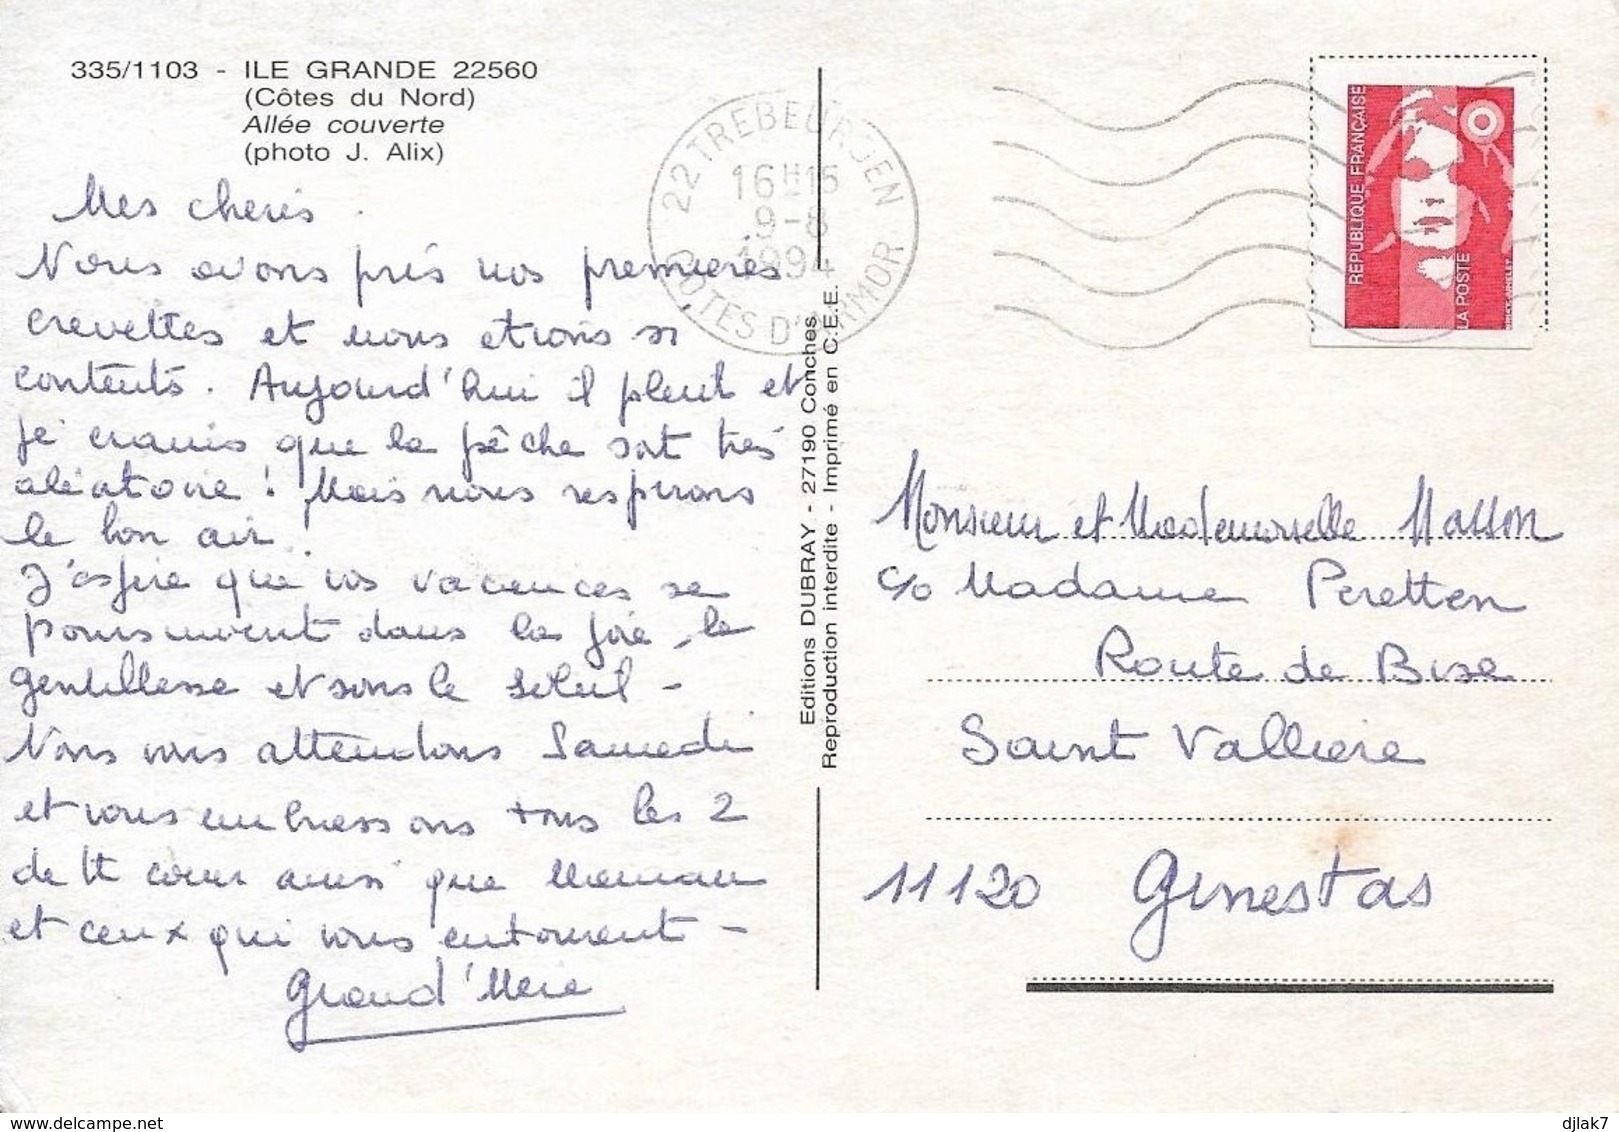 335/1103 - ILE GRANDE 22560
(Côtes du Nord)
Allée couverte
(photo J. Alix)
Mes cheris.
Nous avons pris nos premieres
crevettes et nous etions si
contents. Aujourd'hui il pleut et
je crains que la pêche soit très
aléatoire ! Mais nous respirons
le bon air !
J'espère que vos vacances se
poursuivent dans la joie, la
gentillesse et sous le soleil -
Nous vous attendons Samedi
et vous embrassons tous les 2
de tt coeur ainsi que Maman
et ceux qui vous entourent -
Grand'Mère
22 TREBEURDEN
16H15
9-8
1994
COTES D'ARMOR
Editions DUBRAY - 27190 Conches
Reproduction interdite - Imprimé en C.E.E.
REPUBLIQUE FRANÇAISE
LA POSTE
Monsieur et Mademoiselle Masson
c/o Madame Peretten
Route de Bise
Saint Valliere
11120 Ginestas
djlak7